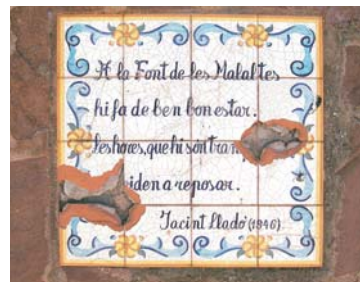 A la Font de les Malaltes
hi fa de ben bon estar.
les hores, que hi són tran
iden a reposar.
Jacint Lladó (1946)